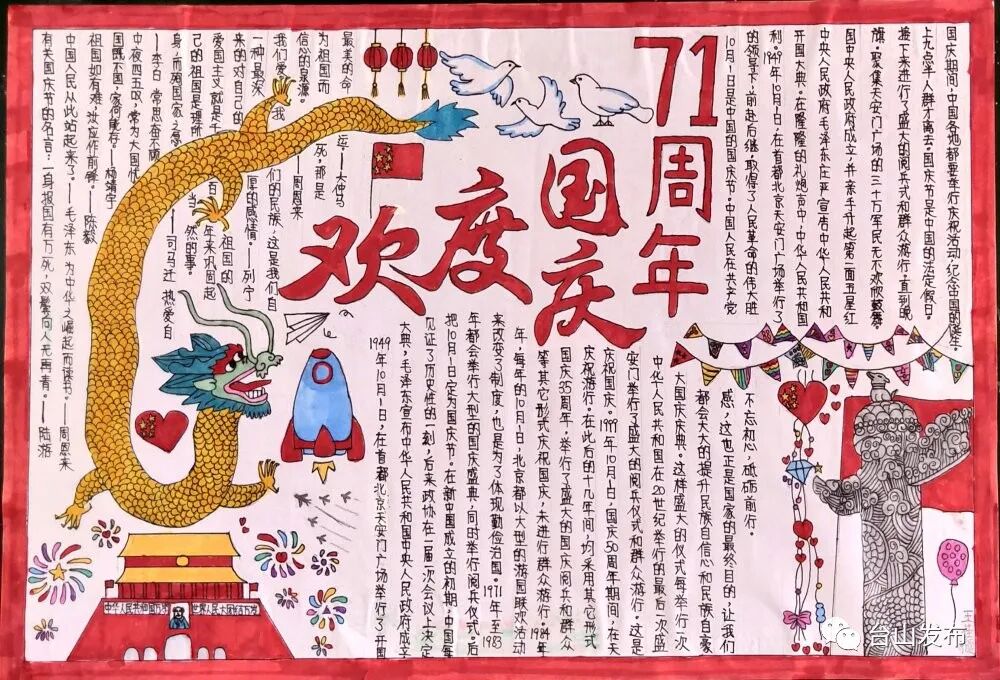 71周年
欢度国庆
有关国庆节的名言：一身报国有万死，双鬓向人无再青。——陆游
中国人民从此站起来了。——毛泽东 为中华之崛起而读书。——周恩来
祖国如有难，汝应作前锋。——陈毅
国既不国，家何能存。——杨靖宇
中夜四五叹，常为大国忧。
——李白 常思奋不顾
身，而殉国家之急。——司马迁 热爱自
己的祖国是理所当然的事。
爱国主义就是千百年来巩固起
来的对自己的祖国的
一种最深厚的感情。——列宁
我们爱我们的民族，这是我们自
信心的泉源。——周恩来
为祖国而死，那是
最美的命运。——大仲马
10月1日是中国的国庆节，中国人民在共产党
的领导下，前赴后继，取得了人民革命的伟大胜
利。1949年10月1日，在首都北京天安门广场举行了
开国大典。在隆隆的礼炮声中，中华人民共和国
中央人民政府毛泽东在庄严宣告中华人民共和
国中央人民政府成立，并亲手升起第一面五星红
旗。聚集天安门广场的三十万军民无不欢欣鼓舞
接下来进行了盛大的阅兵式和群众游行，直到晚
上九点半人群才离去。国庆节是中国的法定假日。
国庆期间，中国各地都要举行庆祝活动，纪念中国的诞生。
1949年10月1日，在首都北京天安门广场举行了开国
大典，毛泽东宣布中华人民共和国中央人民政府成立
见证了历史性的一刻，后来政协在一届一次会议上决定
把10月1日定为国庆节。在新中国成立的初期，中国每
年都会举行大型的国庆盛典，同时举行阅兵仪式。后
来改变了制度，也是为了体现勤俭治国。1971年至1983
年，每年的10月1日，北京都以大型的游园联欢活动
等其它形式庆祝国庆，未进行群众游行。1984年
国庆35周年，举行了盛大的国庆阅兵和群众
庆祝游行。在此后的十几年间，均采用其它形式
庆祝国庆。1999年10月1日，国庆50周年期间，在天
安门举行了盛大的阅兵仪式和群众游行。这是
中华人民共和国在20世纪举行的最后一次盛
大国庆庆典。这样盛大的仪式每举行一次
都会大大的提升民族自信心和民族自豪
感，这也正是国家的最终目的，让我们
不忘初心，砥砺前行。
中华人民共和国万岁
世界人民大团结万岁
台山发布